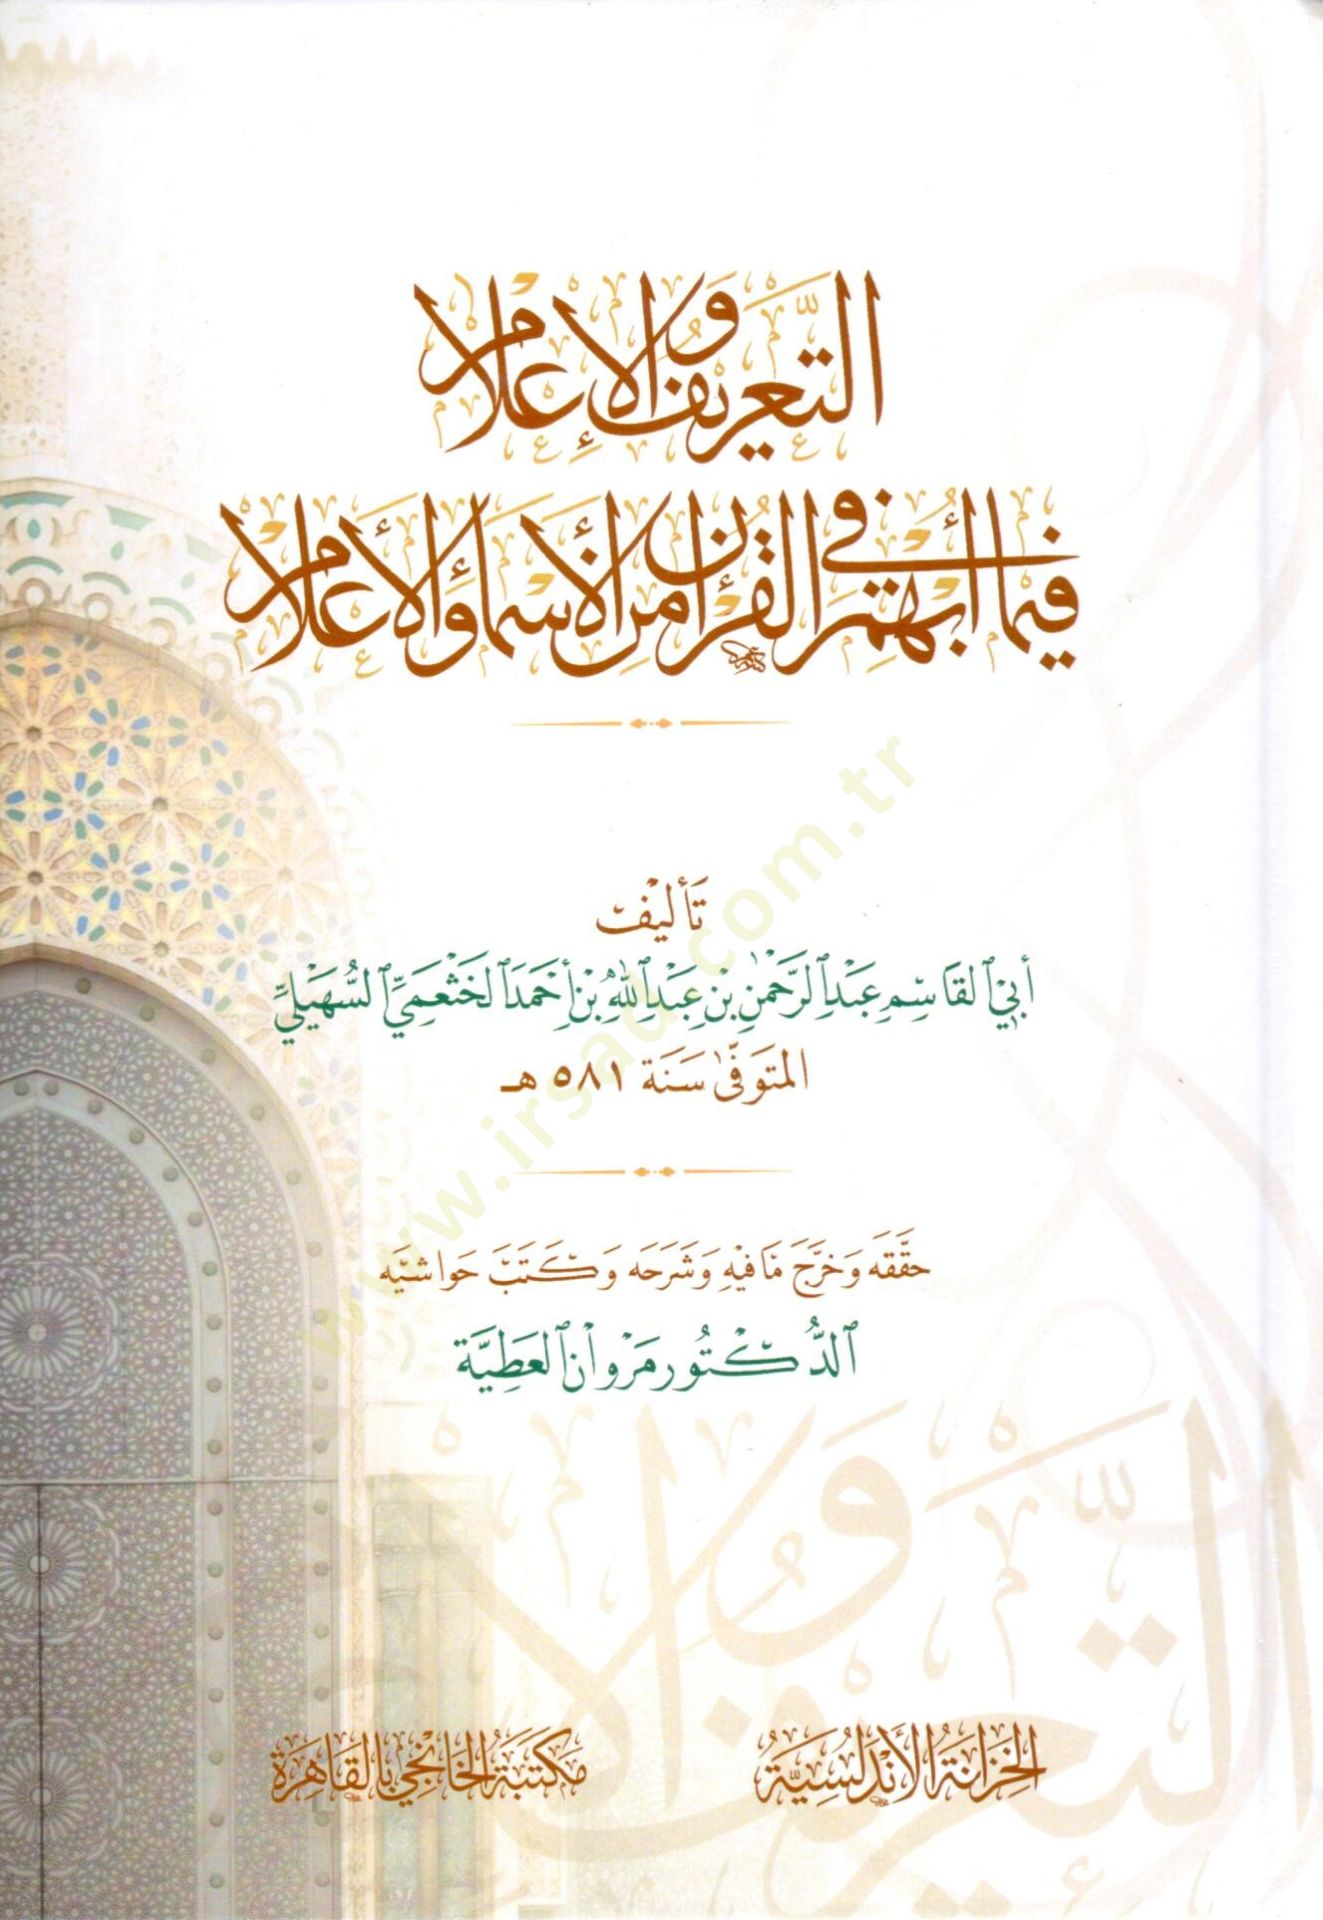 التَّعريف والإعلام
فيما أُبهم في القرآن من الأسماء والأعلام
تأليف
أبي القاسم عبد الرحمن بن عبد الله بن أحمد الخثعمي السهيلي
المتوفى سنة ٥٨١ هـ
حققه وخرّج ما فيه وشرحه وكتب حواشيه
الدكتور مروان العطية
الخزانة الأندلسية
مكتبة الخانجي بالقاهرة
www.irsad.com.tr